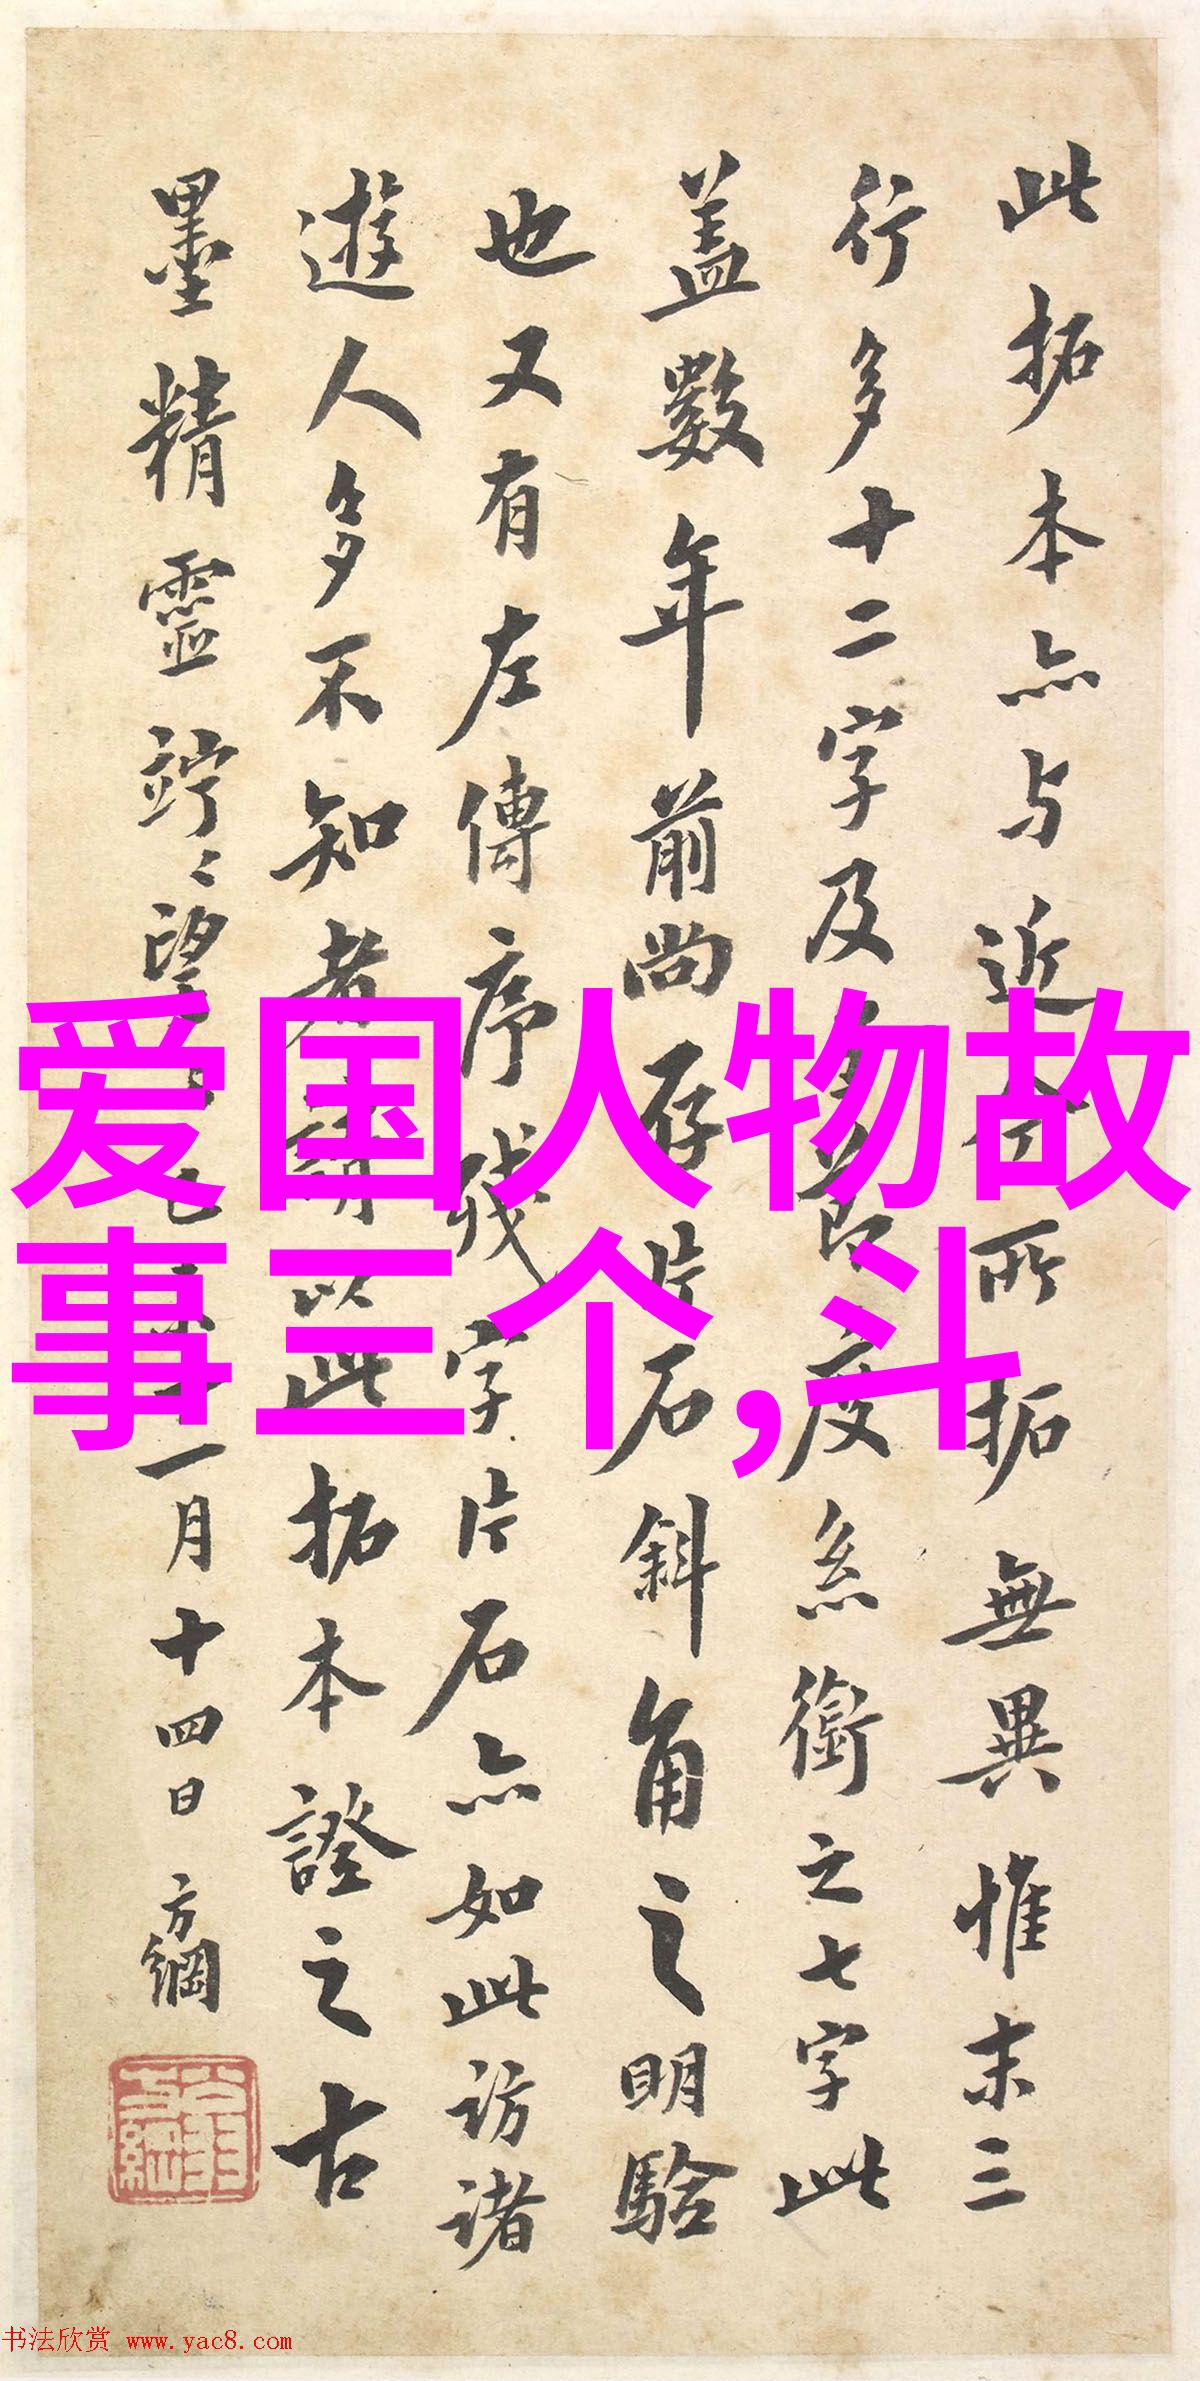 此拓本亦与近今所拓無異惟末三
行多十二字及
度系銜之七字此
蓋數年前尚存片石斜角之明驗
也又有左傳序殘字片石亦如此訪諸
遊人多不知者
以此拓本證之古
墨精靈竚〻望
一月十四日 方綱
爱国人物故
事三个,斗
书法欣赏 www.yac8.com